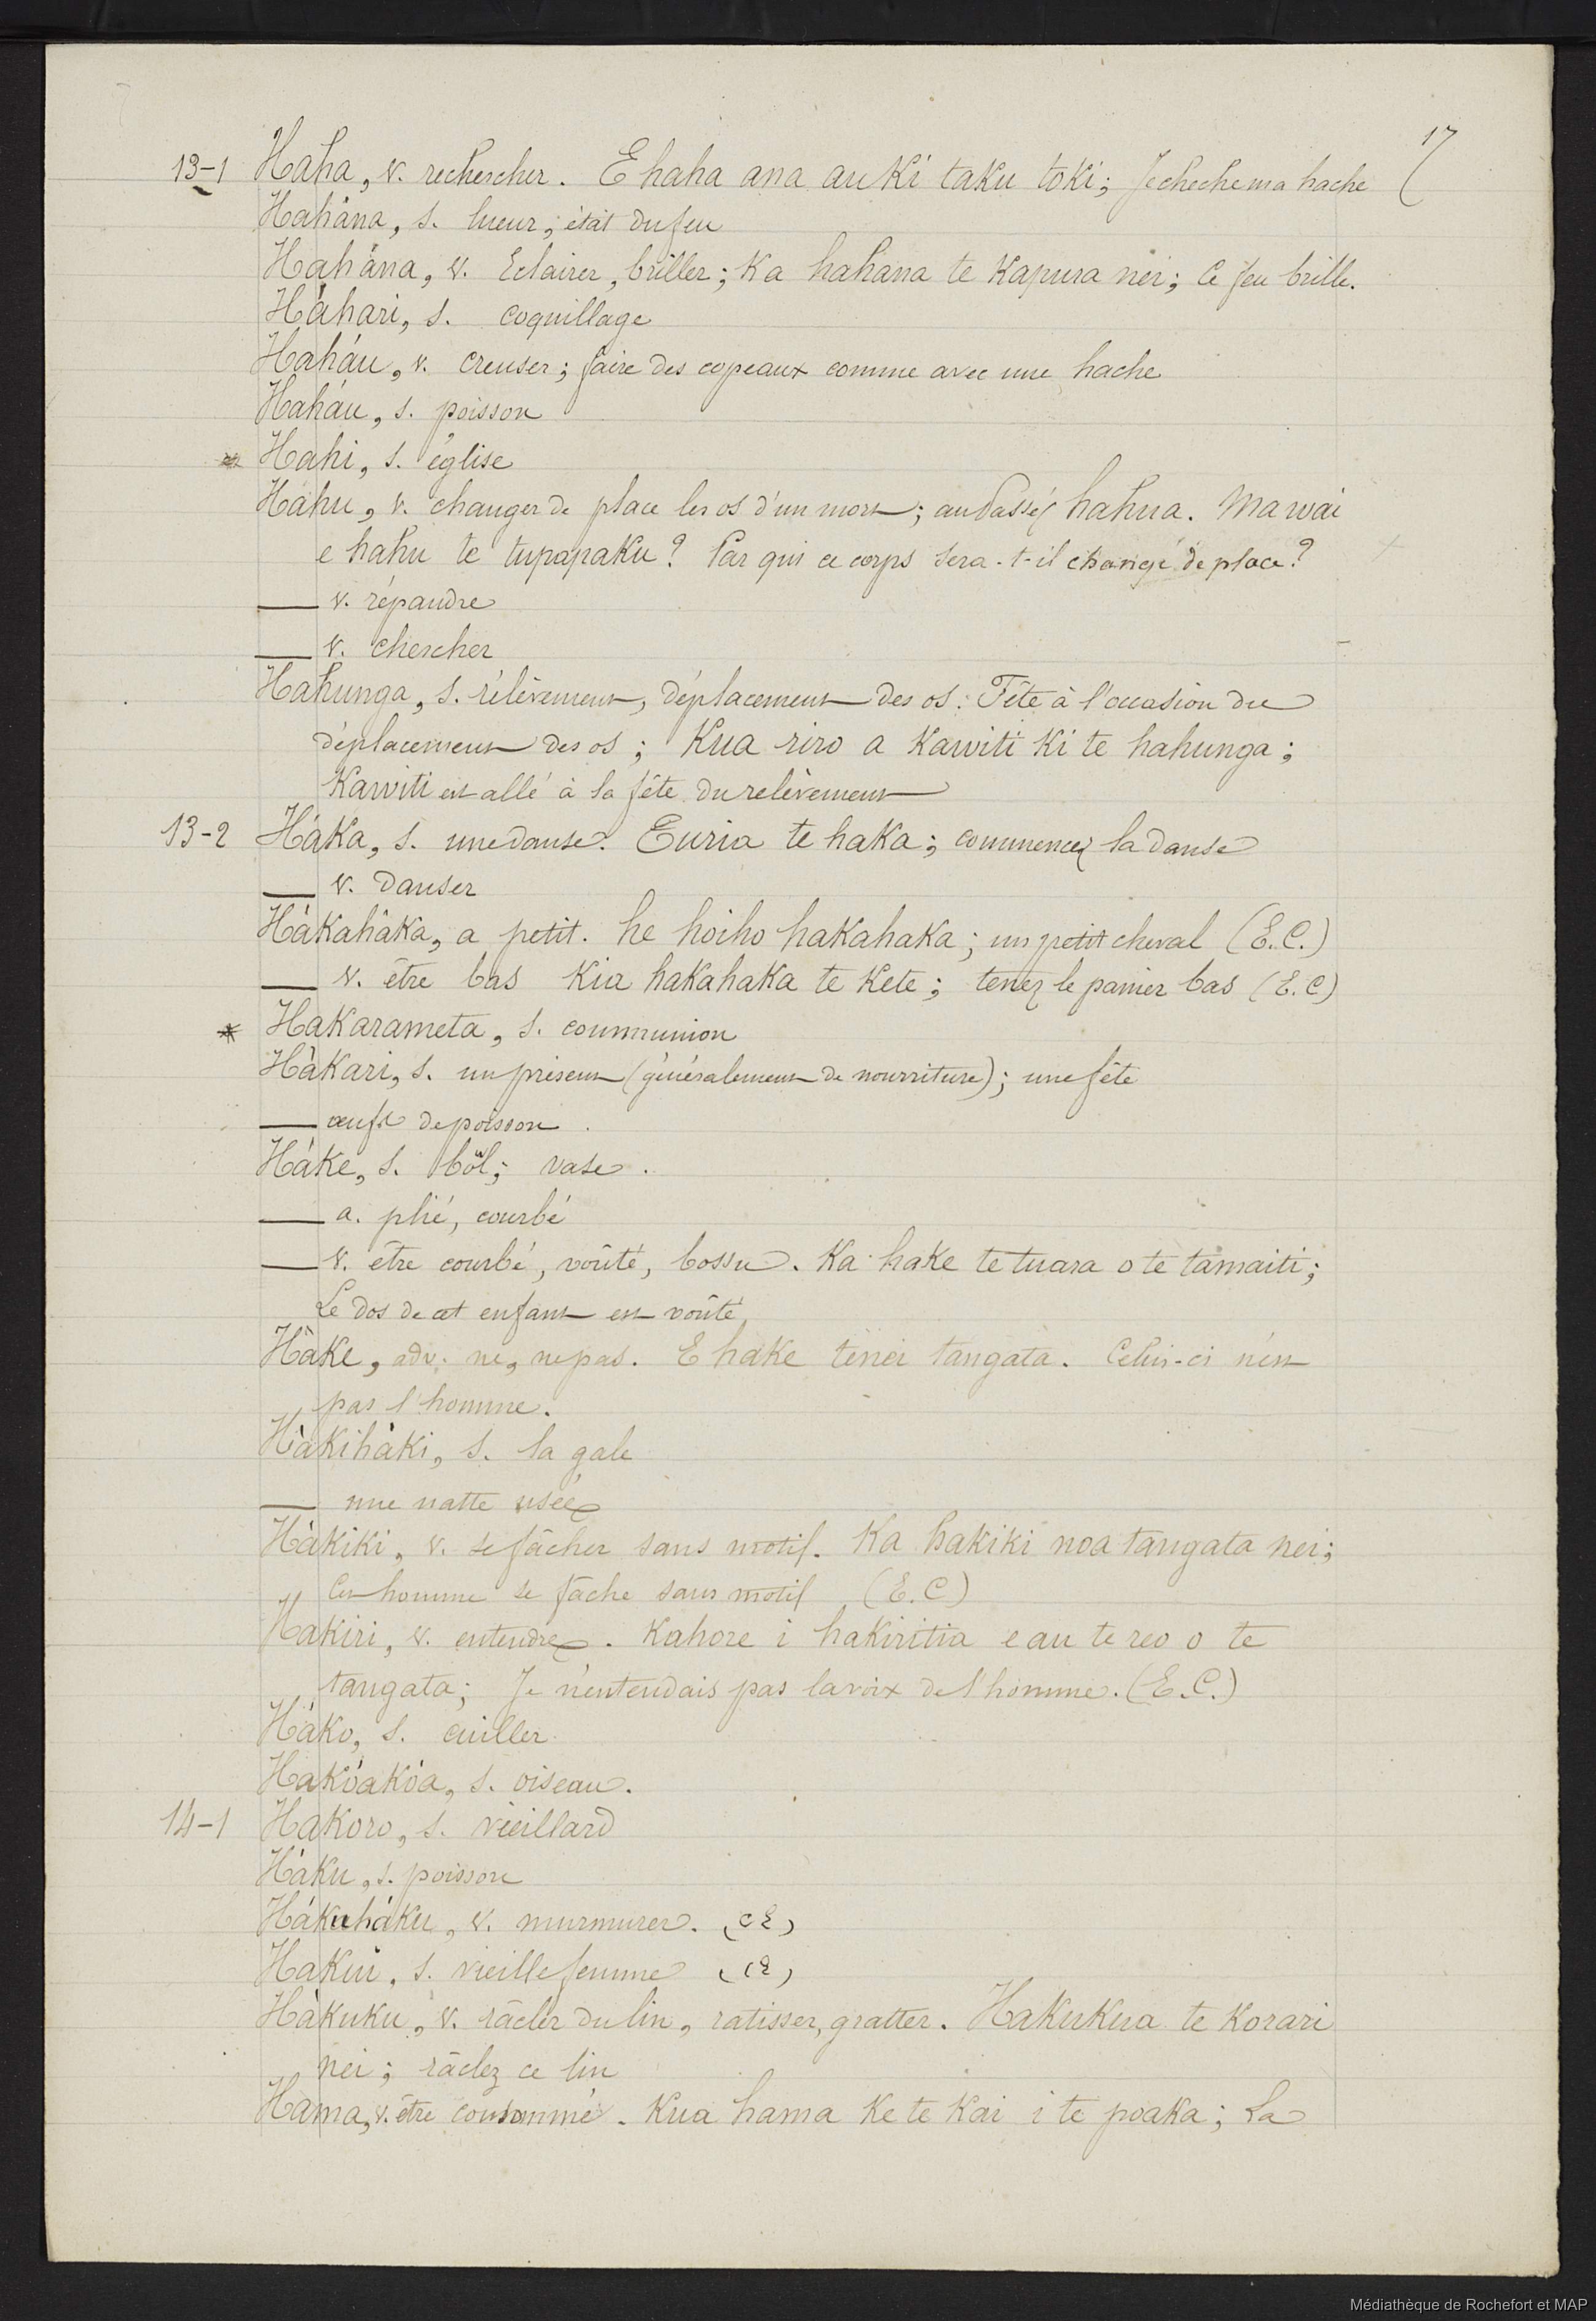 17
13-1 Haha, v. rechercher. E haha ana au ki taku toki; Je cheche ma hache
Hahána, s. lueur; état du feu
Hahána, v. Eclairer, briller; Ka hahana te Kapura nei; Ce feu brille.
Háhari, s. coquillage
Haháu, v. creuser; faire des copeaux comme avec une hache
Haháu, s. poisson
* Hahi, s. église
Háhu, v. changer de place les os d'un mort; au Passé, hahua. Ma wai
e hahu te tupapaku? Par qui ce corps sera-t-il changé de place?
— v. répandre
— v. chercher
Hahunga, s. rélèvement, déplacement des os. Fête à l'occasion du
déplacement des os; Kua riro a Kawiti Ki te hahunga;
Kawiti est allé à la fête du relèvement
13-2 Háka, s. une danse. Euria te haka; commencez la danse
— v. danser
Hákaháka, a petit. he hoiho hakahaka; un petit cheval (E.C.)
— v. être bas Kia hakahaka te Kete; tenez le panier bas (E.C)
* Hakarameta, s. communion
Hákari, s. un présent (généralement de nourriture); une fête
— œufs de poisson.
Háke, s. bowl; vase.
— a. plié, courbé
— v. être courbé, voûté, bossu. Ka hake te tuara o te tamaiti;
Le dos de cet enfant est voûté
Háke, adv. ne, ne pas. E hake tenei tangata. Celui-ci n'est
pas l'homme.
Hákiháki, s. la gale
— une natte usée
Hákiki, v. se fâcher sans motif. Ka hakiki noa tangata nei;
Cet homme se fâche sans motif (E.C)
Hakiri, v. entendre. Kahore i hakiritia e au te reo o te
tangata; Je n'entendais pas la voix de l'homme. (E.C.)
Háko, s. cuiller
Hakóakóa, s. oiseau.
14-1 Hakoro, s. vieillard
Háku, s. poisson
Hákuháku, v. murmurer. (CE)
Hakui, s. vieille femme (CE)
Hákuku, v. râcler du lin, ratisser, gratter. Hakukua te Korari
nei; râclez ce lin
Hama, v. être consommé. Kua hama Ke te Kai i te poaka; La
Médiathèque de Rochefort et MAP